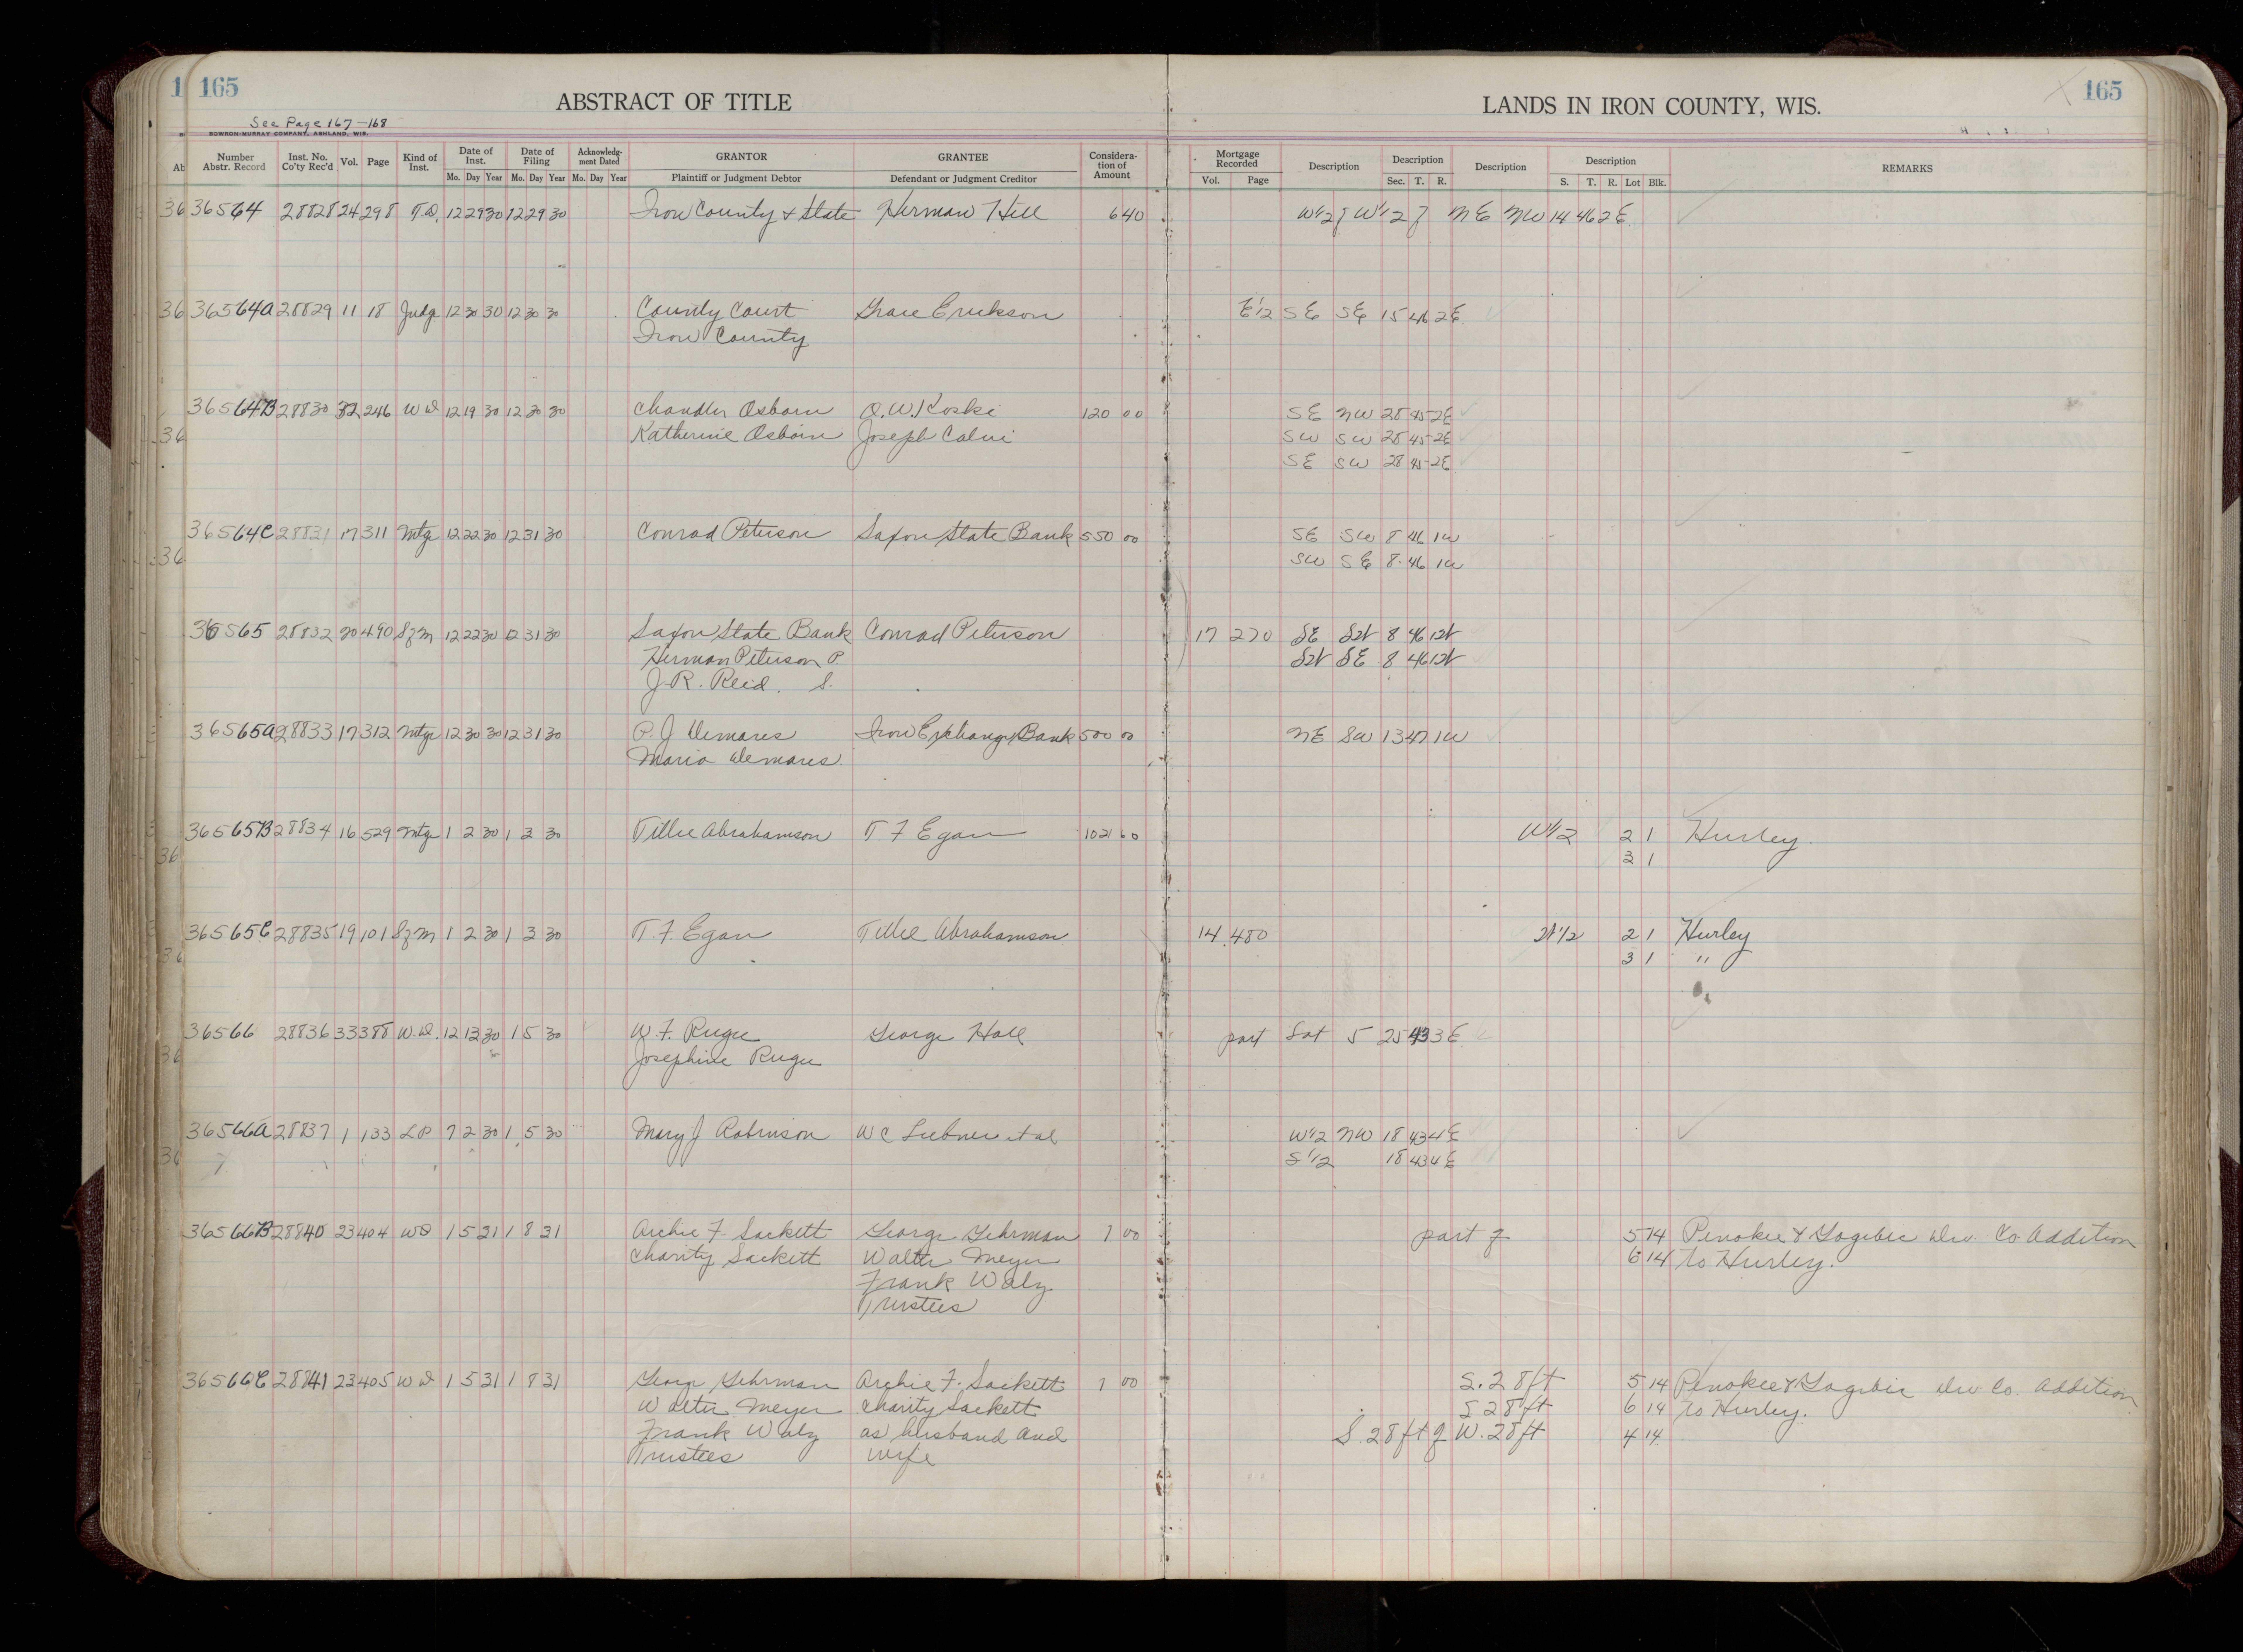 1 165
ABSTRACT OF TITLE
LANDS IN IRON COUNTY, WIS.
165
See Page 167-168
BOWRON-MURRAY COMPANY, ASHLAND, WIS.
Ab Number Abstr. Record Inst. No. Co'ty Rec'd Vol. Page Kind of Inst. Date of Inst. Mo. Day Year Date of Filing Mo. Day Year Acknowledg-ment Dated Mo. Day Year GRANTOR Plaintiff or Judgment Debtor GRANTEE Defendant or Judgment Creditor Considera-tion of Amount Mortgage Recorded Vol. Page Description Description Sec. T. R. Description Description S. T. R. Lot Blk. REMARKS
36 36564 28828 24 298 T.D. 12 29 30 12 29 30 Iron County & State Herman Hill 6 40 W1/2 of W1/2 of NE NW 14 46 2E
36 36564a 28829 11 18 Judg 12 30 30 12 30 30 County Court Grace Erickson E1/2 SE SE 15 46 2E
Iron County
36564B 28830 32 246 W D 12 19 30 12 30 30 Chandler Osborn O.W. Koski 120 00 SE NW 28 45 2E
36 Katherine Osborn Joseph Calvi SW SW 28 45 2E
SE SW 28 45 2E
36564C 28831 17 311 Mtge 12 22 30 12 31 30 Conrad Peterson Saxon State Bank 550 00 SE SW 8 46 1W
36 SW SE 8 46 1W
36565 28832 20 490 S of M 12 22 30 12 31 30 Saxon State Bank Conrad Peterson 17 270 SE SW 8 46 1W
Herman Peterson P. SW SE 8 46 1W
J.R. Reid. S.
36565a 28833 17 312 Mtge 12 30 30 12 31 30 P.J. Demares Iron Exchange Bank 500 00 NE SW 13 47 1W
Maria Demares
36565B 28834 16 529 Mtge 1 2 30 1 2 30 Tillie Abrahamson T F Egan 1021 60 W1/2 2 1 Hurley
36 3 1
36565C 28835 19 101 S of M 1 2 30 1 2 30 T F Egan Tillie Abrahamson 14 480 W1/2 2 1 Hurley
36 3 1 "
36566 28836 33 388 W.D. 12 13 30 1 5 30 W.F. Ruger George Hall part Lot 5 25 43 3E
36 Josephine Ruger
36566a 28837 1 133 LP 7 2 30 1 5 30 Mary J Robinson W C Liebner et al W1/2 NW 18 43 4E
36 S1/2 18 43 4E
36566B 28840 23 404 WD 1 5 31 1 8 31 Archie F. Sackett George Gehrman 1 00 part of 5 14 Penokee & Gogebic Dev. Co. Addition
Charity Sackett Walter Meyer 6 14 to Hurley.
Frank Walz
Trustees
36566C 28841 23 405 W D 1 5 31 1 8 31 George Gehrman Archie F. Sackett 1 00 S. 28 ft 5 14 Penokee & Gogebic Dev Co. Addition
Walter Meyer Charity Sackett S 28 ft 6 14 to Hurley.
Frank Walz as husband and S. 28 ft of W. 28 ft 4 14
Trustees wife